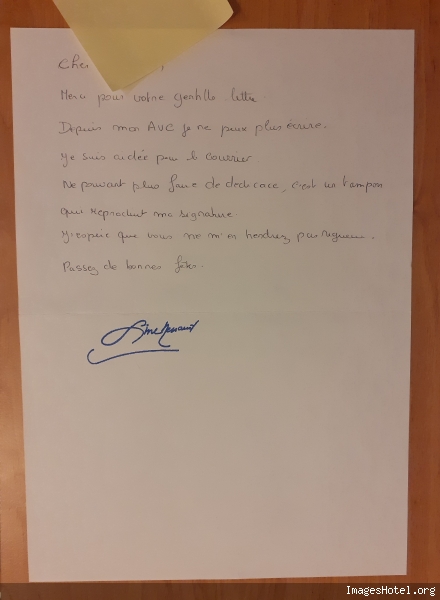 Cher
Merci pour votre gentille lettre.
Depuis mon AVC je ne peux plus écrire.
Je suis aidée pour le courrier
Ne pouvant plus faire de dédicace, c'est un tampon
qui reproduit ma signature
J'espère que vous ne m'en tiendrez pas rigueur.
Passez de bonnes fêtes.
Line Renaud
ImagesHotel.org